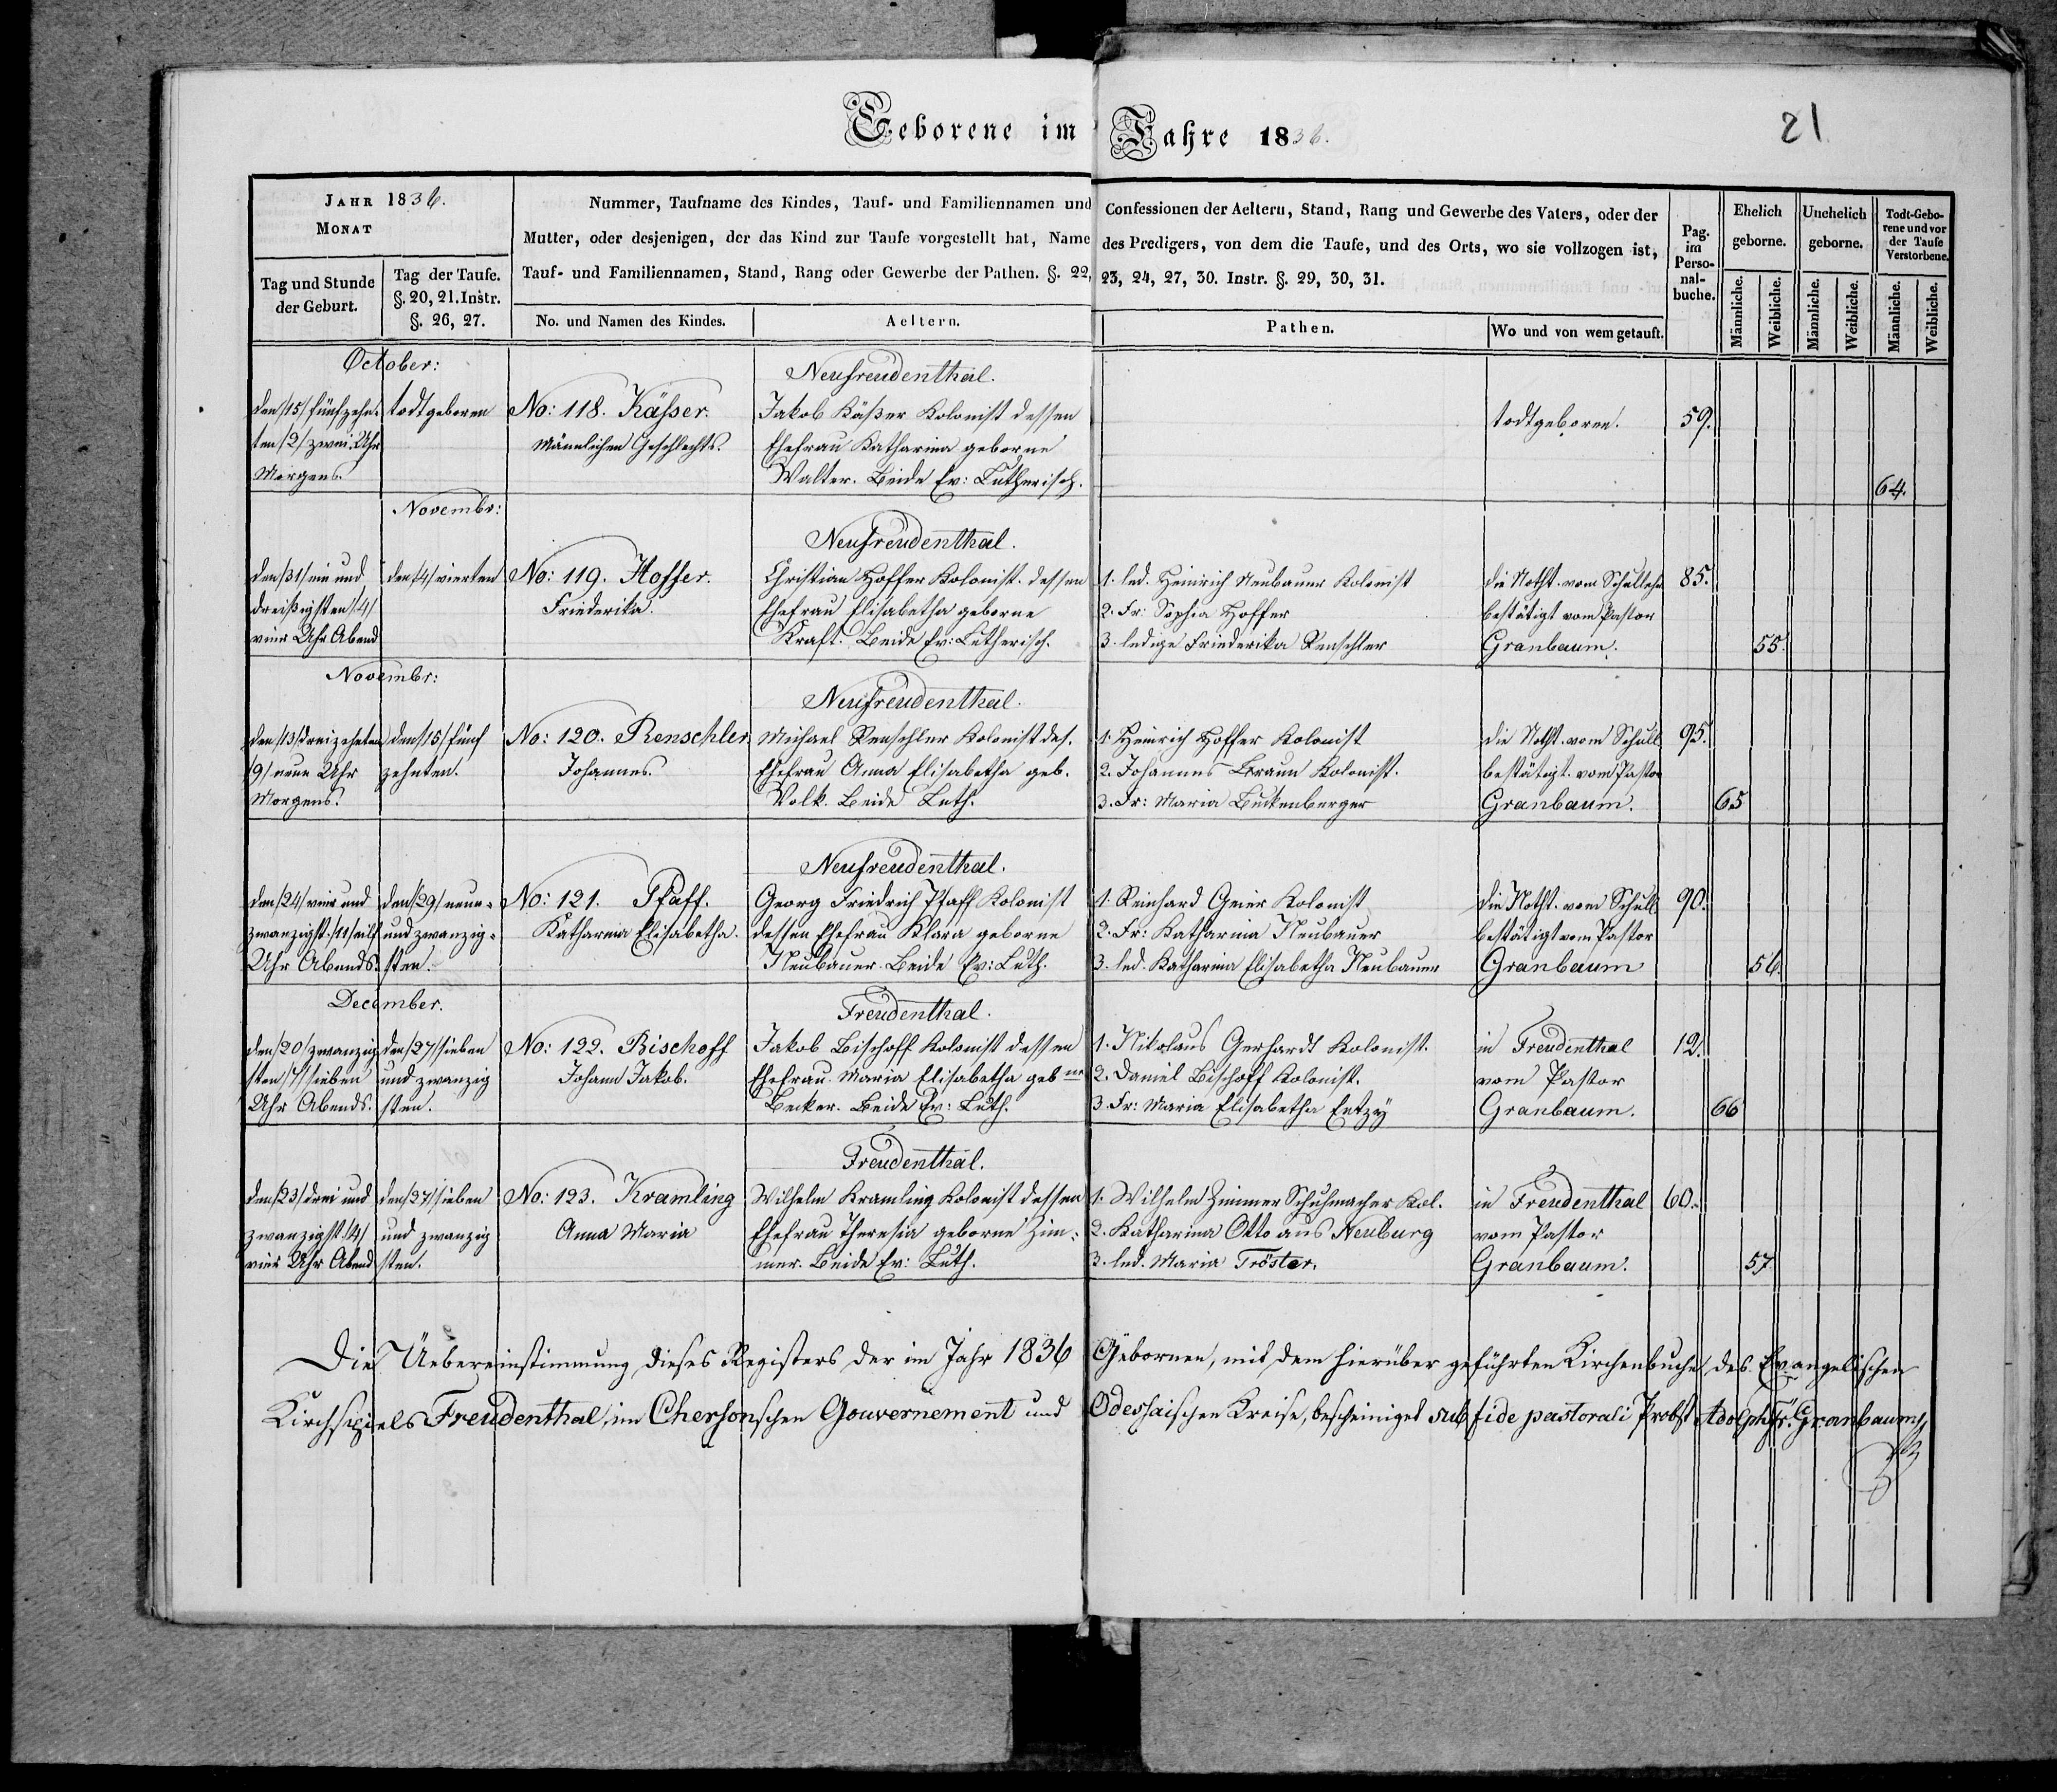 Geborene im Jahre 1836.
21
JAHR 1836.
MONAT
Tag und Stunde der Geburt.
Tag der Taufe. §. 20, 21. Instr. §. 26, 27.
Nummer, Taufname des Kindes, Tauf- und Familiennamen und Confessionen der Aeltern, Stand, Rang und Gewerbe des Vaters, oder der
Mutter, oder desjenigen, der das Kind zur Taufe vorgestellt hat, Name des Predigers, von dem die Taufe, und des Orts, wo sie vollzogen ist,
Tauf- und Familiennamen, Stand, Rang oder Gewerbe der Pathen. §. 22, 23, 24, 27, 30. Instr. §. 29, 30, 31.
No. und Namen des Kindes.
Aeltern.
Pathen.
Wo und von wem getauft.
Pag. im Perso-nal-buche.
Ehelich geborne.
Unehelich geborne.
Todt-Gebo-rene und vor der Taufe Verstorbene.
Männliche. Weibliche. Männliche. Weibliche. Männliche. Weibliche.
October:
Neufreudenthal.
den /15/ fünfzehn- todtgeboren No: 118. Kässer. Jakob Käßer Kolonist dessen todtgeboren. 59.
ten /2/ zwei Uhr Männlichen Geschlechts. Ehefrau Katharina geborne
Morgens. Walter. Beide Ev: Lutherisch. 64.
Novembr:
Neufreudenthal.
den /31/ ein und den /4/ vierten No: 119. Hoffer. Christian Hoffer Kolonist. dessen 1. led. Heinrich Neubauer Kolonist die Notht. vom Schulleh. 85.
dreißigsten /4/ Friederika. Ehefrau Elisabetha geborne 2. Fr: Sophia Hoffer bestätigt vom Pastor
vier Uhr Abend Kraft. Beide Ev: Lutherisch. 3. ledige Friederika Renschler Granbaum. 55.
Novembr:
Neufreudenthal.
den /13/ dreizehnten den /15/ fünf No: 120. Renschler Michael Renschler Kolonist des. 1. Heinrich Hoffer Kolonist die Notht. vom Schull. 95.
/9/ neun Uhr zehnten. Johannes. Ehefrau Anna Elisabetha geb. 2. Johannes Braun Kolonist. bestätigt. vom Pastor
Morgens. Volk. Beide Luth. 3. Fr: Maria Buckenberger Granbaum. 65
Neufreudenthal.
den /24/ vier und den /29/ neun- No: 121. Pfaff. Georg Friedrich Pfaff Kolonist 1. Reinhard Geier Kolonist die Notht. vom Schull. 90.
zwanzigst. /11/ eilf und zwanzig- Katharina Elisabetha. dessen Ehefrau Klara geborne 2. Fr: Katharina Neubauer bestätigt vom Pastor
Uhr Abends. sten. Neubauer. Beide Ev: Luth. 3. led. Katharina Elisabetha Neubauer Granbaum 56.
December.
Freudenthal.
den /20/ zwanzig den /27/ sieben No: 122. Bischoff Jakob Bischoff Kolonist dessen 1. Nikolaus Gerhardt Kolonist. in Freudenthal 12.
sten /7/ sieben und zwanzig Johann Jakob. Ehefrau Maria Elisabetha geb ne 2. Daniel Bischoff Kolonist. vom Pastor
Uhr Abends. sten. Becker. Beide Ev: Luth. 3. Fr: Maria Elisabetha Entzy Granbaum. 66
Freudenthal.
den /23/ drei und den /27/ sieben No: 123. Kramling Wilhelm Kramling Kolonist dessen 1. Wilhelm Zimmer Schuhmacher Kol. in Freudenthal 60.
zwanzigst. /4/ und zwanzig Anna Maria Ehefrau Theresia geborne Zim- 2. Katharina Otto aus Neuburg vom Pastor
vier Uhr Abend sten. mer. Beide Ev: Luth. 3. led. Maria Tröster. Granbaum. 57.
Die Uebereinstimmung dieses Registers der im Jahr 1836 Gebornen, mit dem hierüber geführten Kirchenbuche des Evangelischen
Kirchspiels Freudenthal, im Chersonschen Gouvernement und Odessaischen Kreise, bescheiniget sub fide pastorali Probst Adolph Fr. Granbaum